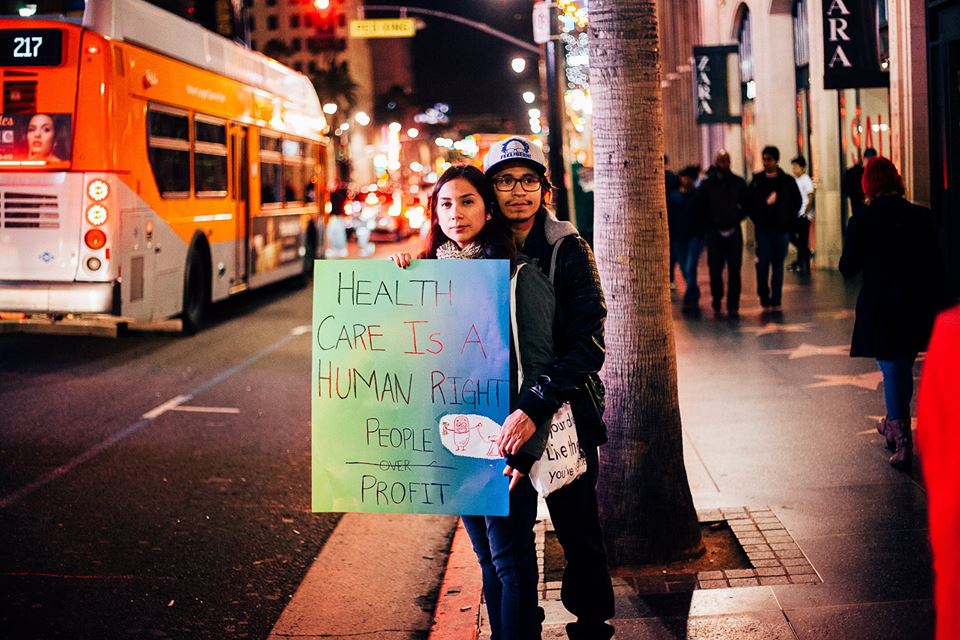 217
ZARA
ZARA
HEALTH
CARE IS A
HUMAN RIGHT
PEOPLE
OVER
PROFIT
your d
Like the
you've